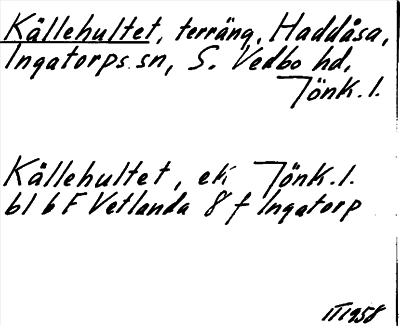 Källehultet, terräng, Haddåsa,
Ingatorps sn, S. Vedbo hd,
Jönk. l.
Källehultet, ek. Jönk. l.
bl 6 F Vetlanda 8 f Ingatorp
III 1958